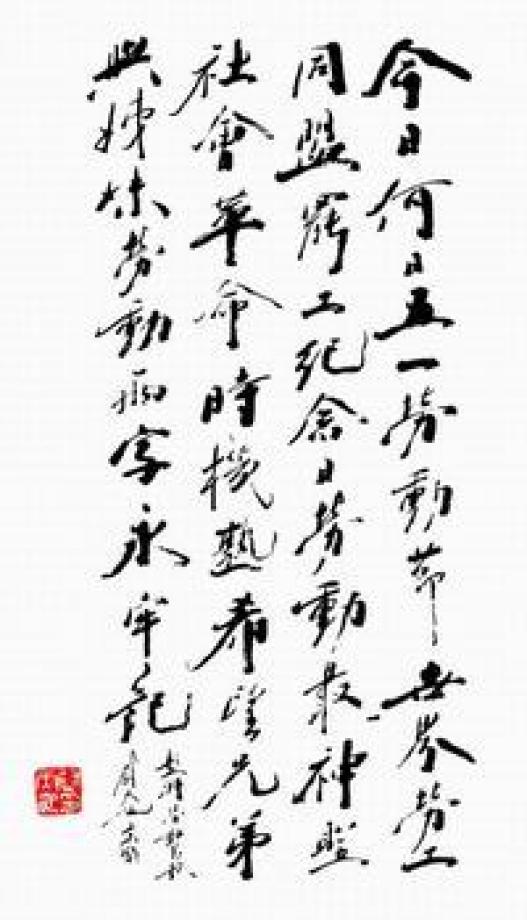 今日何日五一勞動節世界勞工
同盟罷工紀念日勞動最神聖
社會革命時機熟希望兄弟
與姊妹勞動兩字永牢記